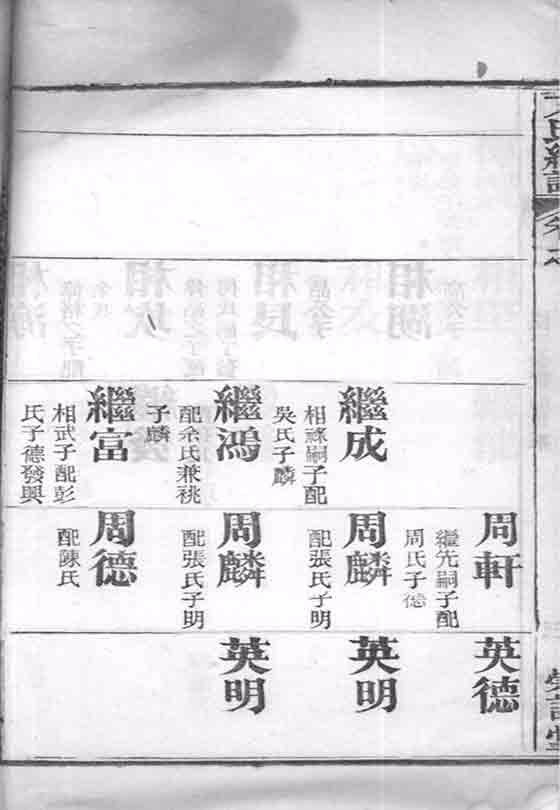 繼成
相祿嗣子配
吳氏子麟
繼鴻
配余氏兼祧
子麟
繼富
相武子配彭
氏子德發興
周軒
繼先嗣子配
周氏子德
周麟
配張氏子明
周麟
配張氏子明
周德
配陳氏
英德
英明
英明